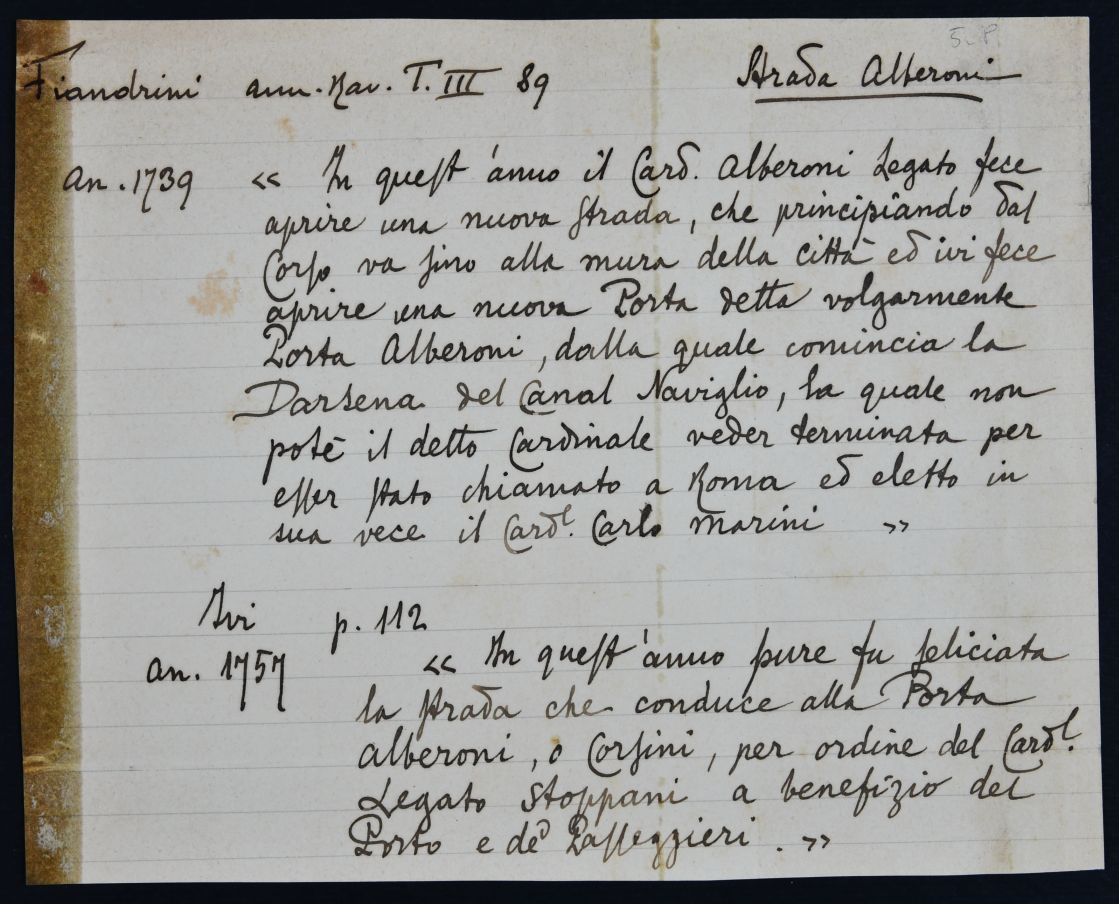 S. P.
Fiandrini ann. Rav. T. III 89 Strada Alberoni
An. 1739 « In quest'anno il Card. Alberoni Legato fece
aprire una nuova strada, che principiando dal
Corso va sino alla mura della città ed ivi fece
aprire una nuova Porta detta volgarmente
Porta Alberoni, dalla quale comincia la
Darsena del Canal Naviglio, la quale non
potè il detto Cardinale veder terminata per
esser stato chiamato a Roma ed eletto in
sua vece il Card.l Carlo Marini »
Ivi p. 112
An. 1757 « In quest'anno pure fu seliciata
la strada che conduce alla Porta
Alberoni, o Corsini, per ordine del Card.l
Legato Stoppani a benefizio del
Porto e de' Passeggieri. »